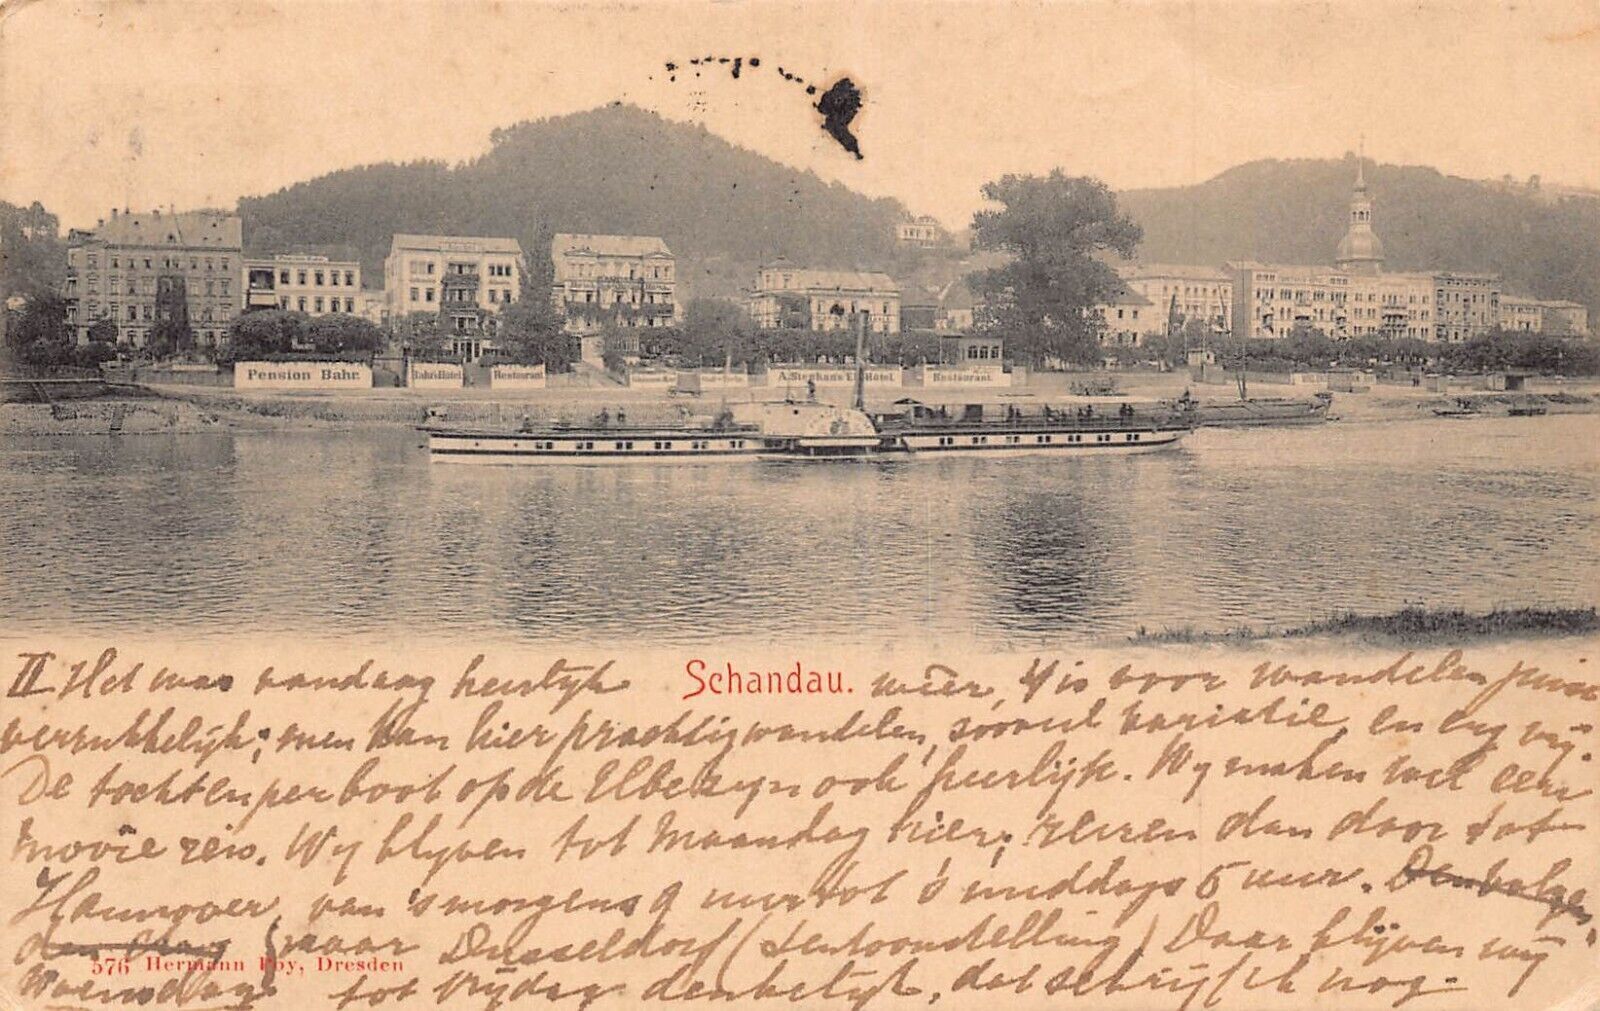 Pension Bahr.
Bahr's Hôtel
Restaurant
Restaurant.
Schandau.
II. Het was vandaag heerlijk weer, 't is voor wandelen juist
verrukkelijk; men kan hier prachtig wandelen, zooveel variatie, en erg vrij.
De tochten per boot op de Elbe zijn ook heerlijk. Wij maken wel een
mooie reis. Wij blijven tot Maandag hier; reizen dan door tot
Hannover, van 'smorgens 9 uur tot 's middags 5 uur.
naar Dusseldorf (tentoonstelling) Daar blijven wij
Woensdag tot Vrijdag denkelijk, dat schrijf ik nog.
576 Hermann Poy, Dresden